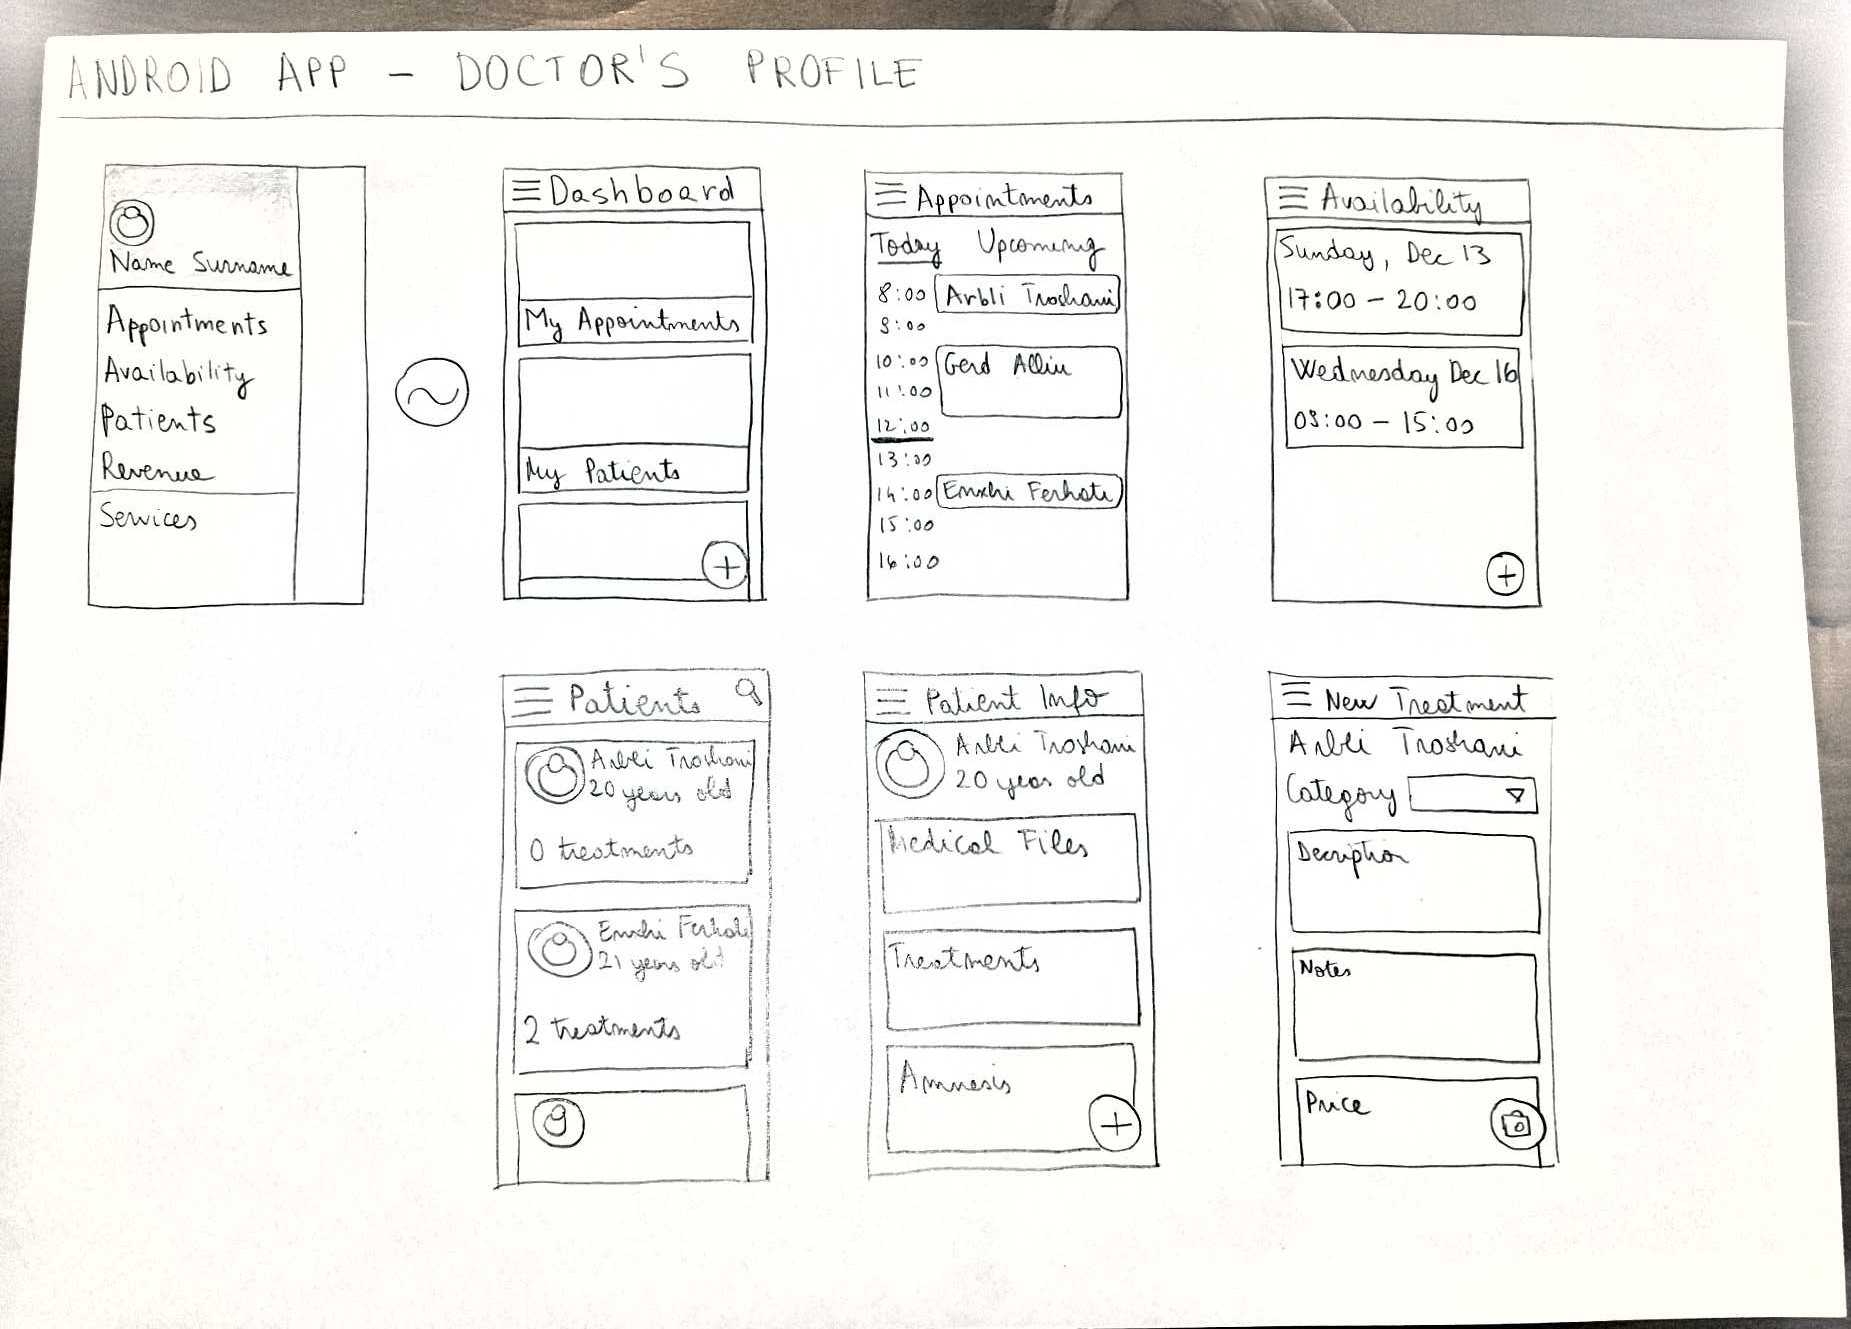 ANDROID APP - DOCTOR'S PROFILE
Name Surname
Appointments
Availability
Patients
Revenue
Services
Dashboard
My Appointments
My Patients
Appointments
Today Upcoming
8:00 Arbli Troshani
9:00
10:00 Gerd Alliu
11:00
12:00
13:00
14:00 Enxhi Ferhati
15:00
16:00
Availability
Sunday, Dec 13
17:00 - 20:00
Wednesday Dec 16
09:00 - 15:00
Patients
Arbli Troshani
20 years old
0 treatments
Enxhi Ferhati
21 years old
2 treatments
Patient Info
Arbli Troshani
20 years old
Medical Files
Treatments
Amnesis
New Treatment
Arbli Troshani
Category
Decription
Notes
Price